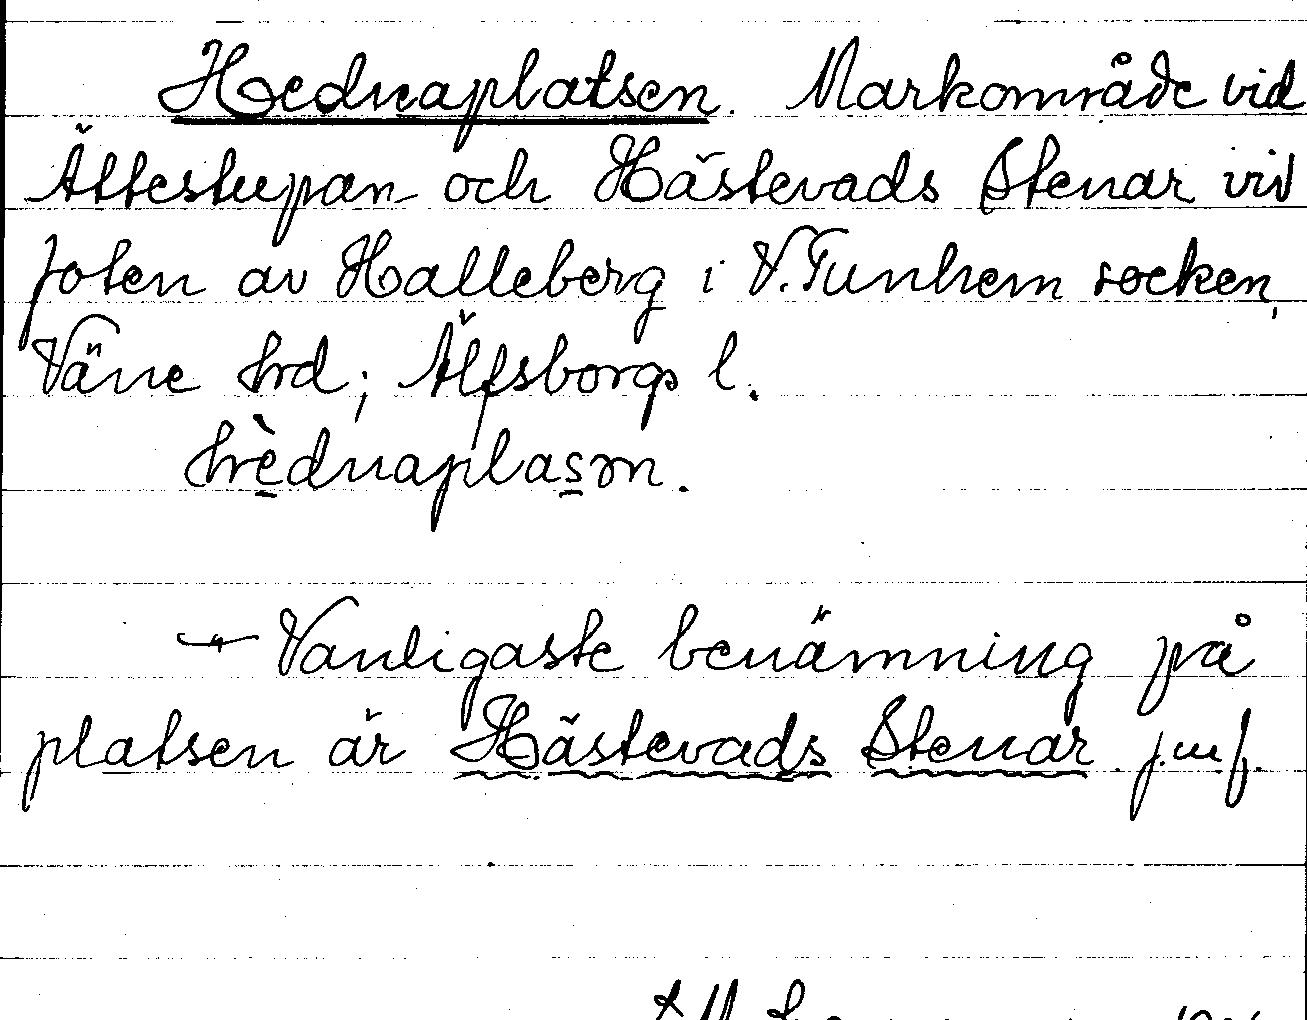 Hednaplatsen. Markområde vid
Ättestupan och Hästevads Stenar vid
foten av Halleberg i V. Tunhem socken,
Väne hrd; Älfsborgs l.
hèdnaplasən.
Vanligaste benämning på
platsen är Hästevads Stenar j.m.f.